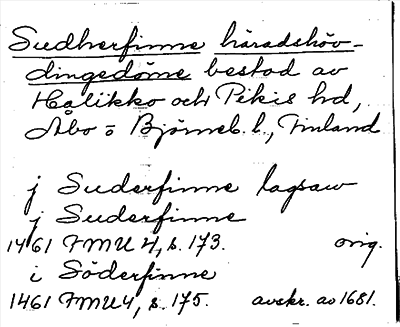 Sudherfinne häradshöv-
dingedöme bestod av
Halikko och Pikis hd,
Åbo o Björneb. l., Finland
j Suderfinne lagsaw
j Suderfinne
1461 FMU 4, s. 173. orig.
i Söderfinne
1461 FMU 4, s. 175. avskr. av 1681.